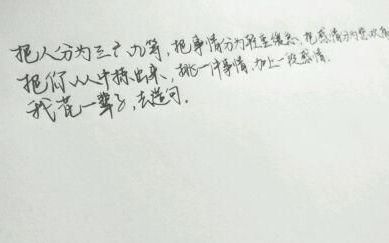 把人分为三六九等,把事情分为轻重缓急,把感情分为喜欢
把你从人中摘出来,挑一件事情,加上一段感情.
我花一辈子,去造句.